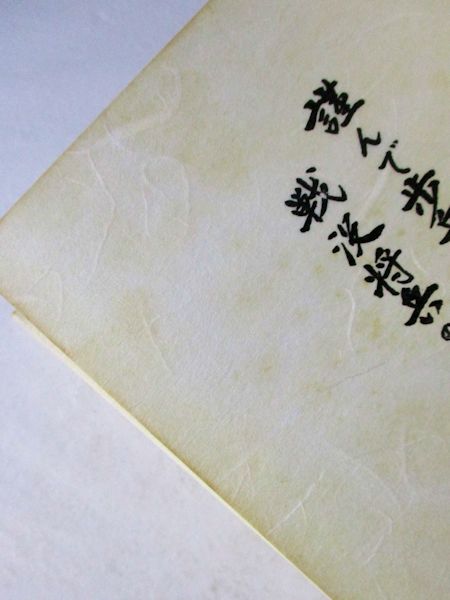 謹んで歩
戦没将兵の